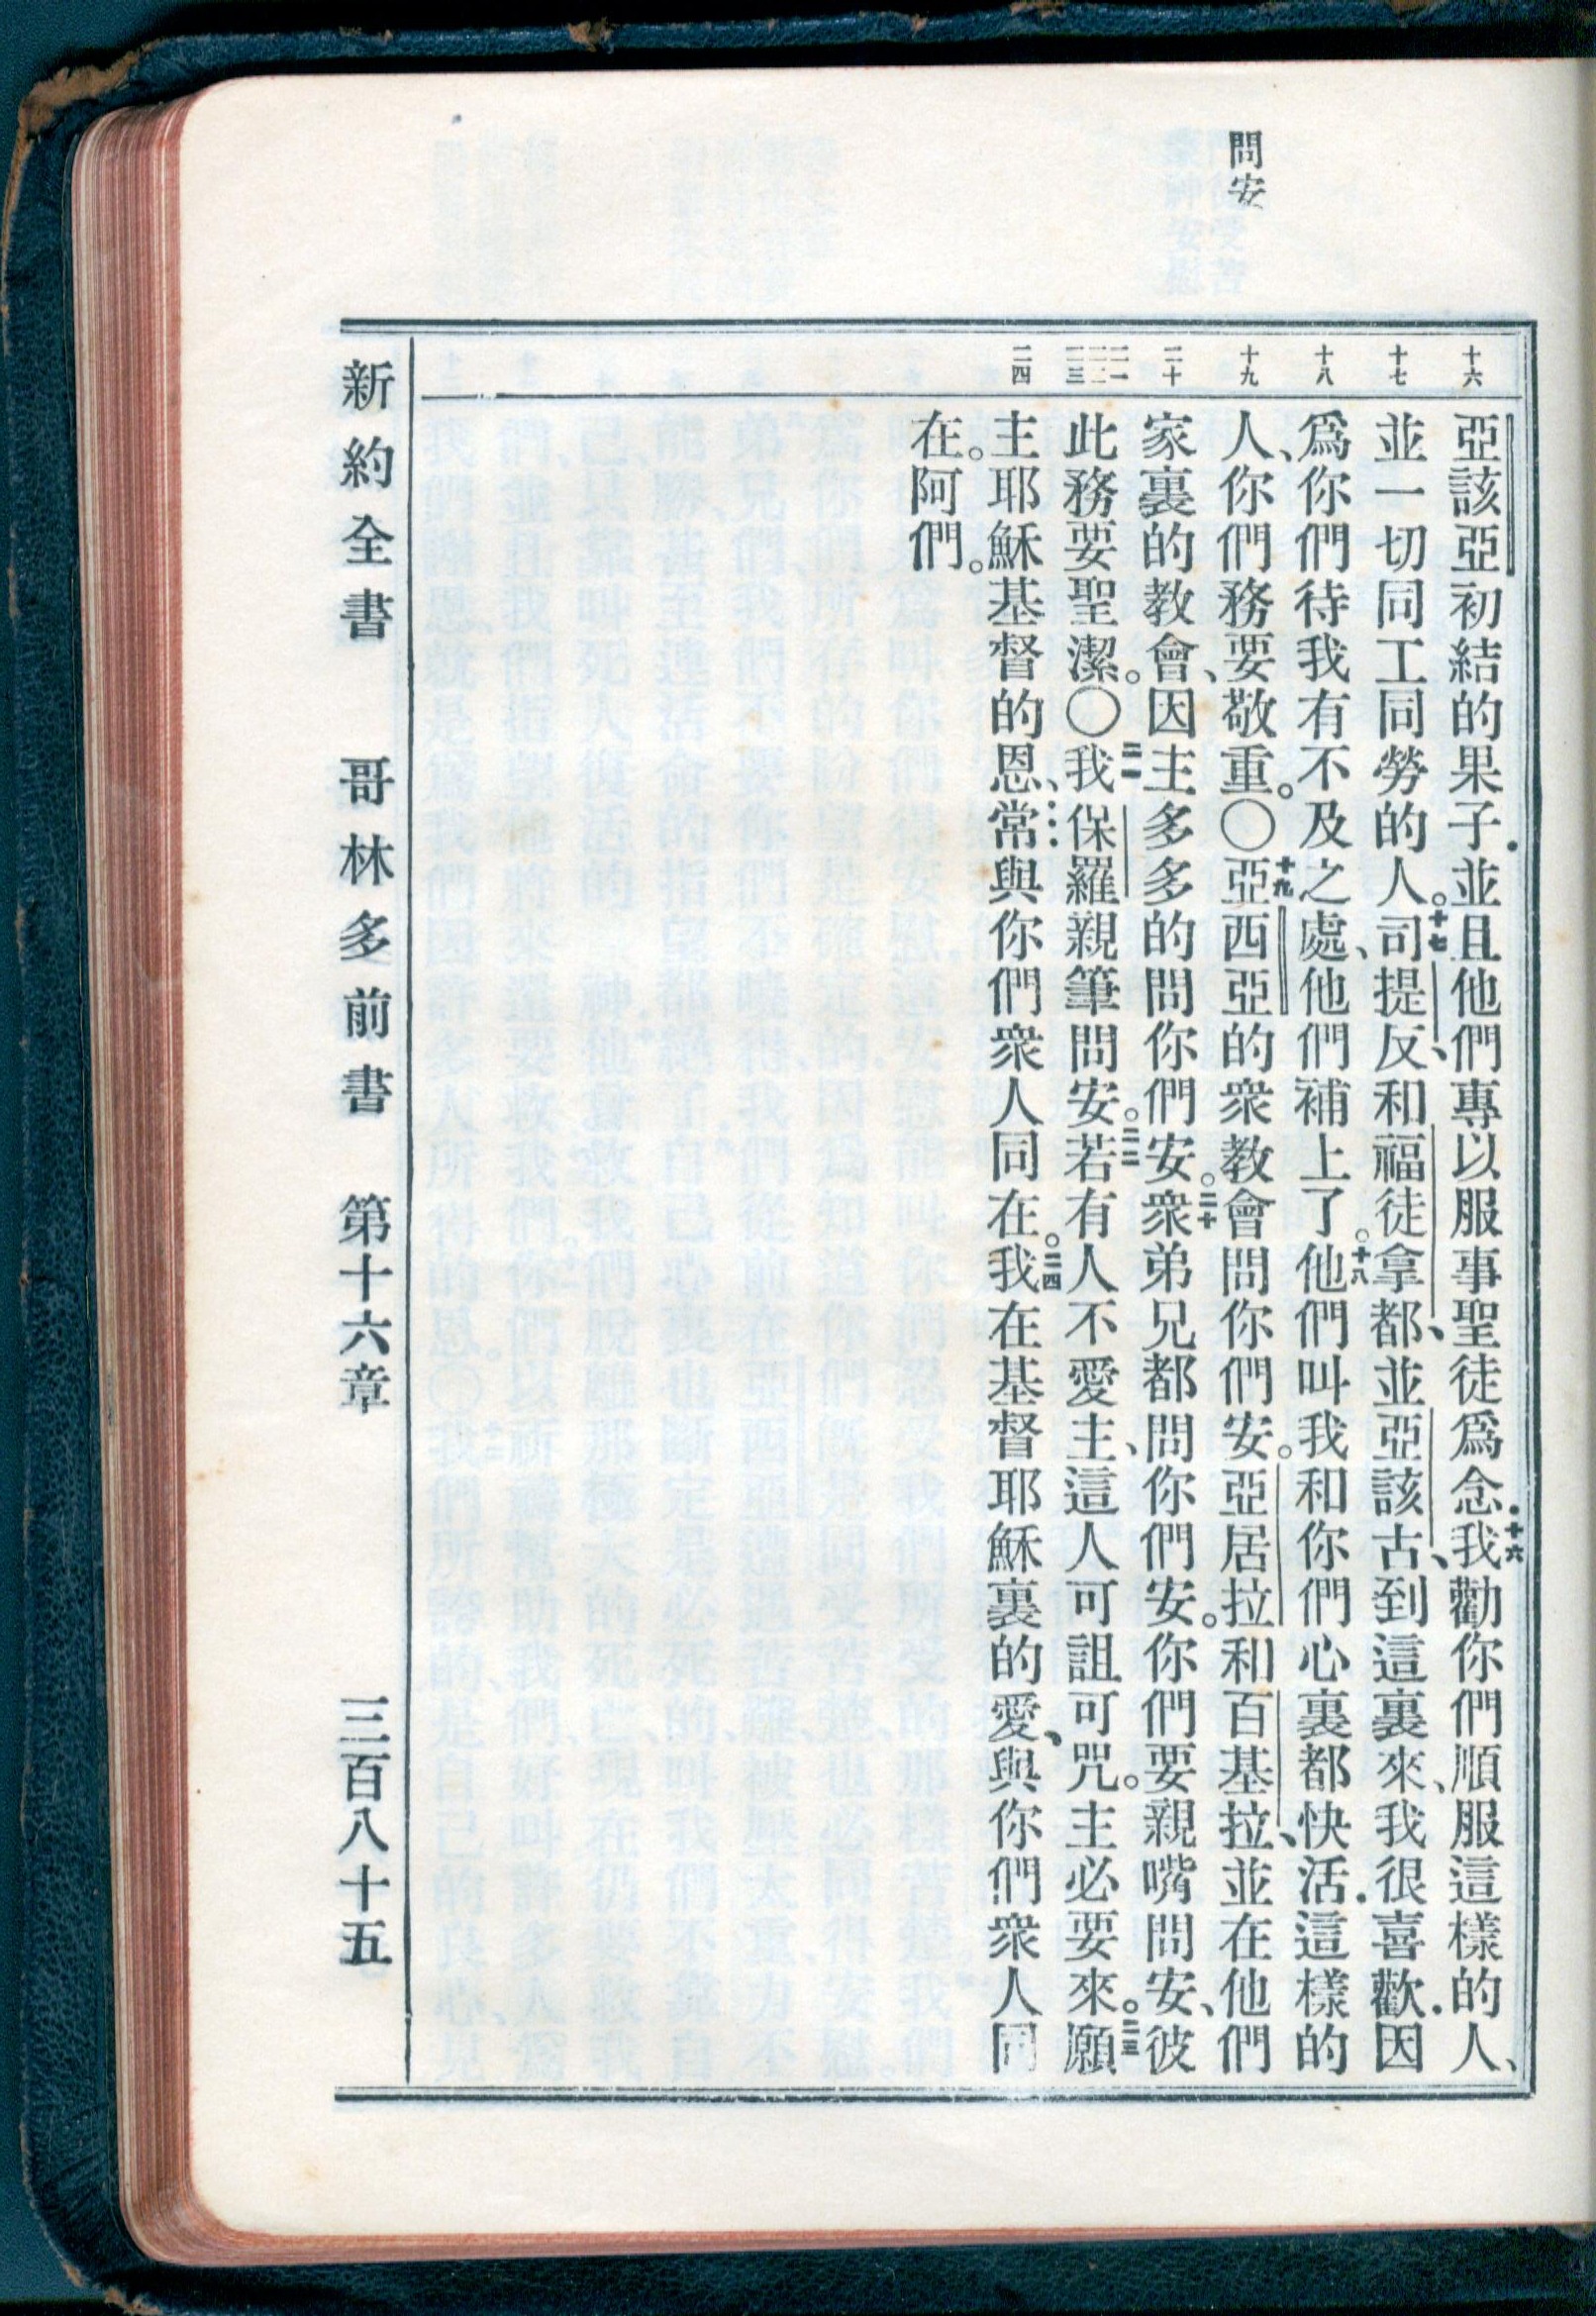 問安
十六
十七
十八
十九
二十
二一
二二
二三
二四
亞該亞初結的果子．並且他們專以服事聖徒爲念．十六我勸你們順服這樣的人、
並一切同工同勞的人。十七司提反、和福徒拿都、並亞該古、到這裏來、我很喜歡．因
爲你們待我有不及之處、他們補上了。十八他們叫我和你們心裏都快活．這樣的
人、你們務要敬重。〇十九亞西亞的衆教會問你們安。亞居拉和百基拉、並在他們
家裏的教會、因主多多的問你們安。二十衆弟兄都問你們安。你們要親嘴問安、彼
此務要聖潔。〇二一我保羅親筆問安。二二若有人不愛主、這人可詛可咒。主必要來。二三願
主耶穌基督的恩、常與你們衆人同在。二四我在基督耶穌裏的愛、與你們衆人同
在。阿們。
新約全書　哥林多前書　第十六章　三百八十五